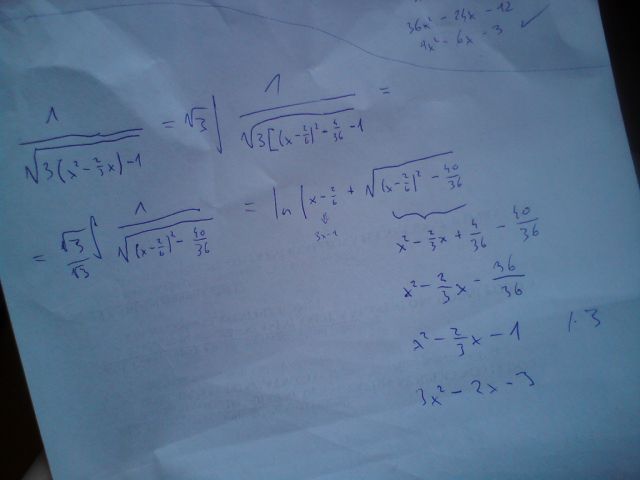 36x² - 24x - 12
4x² - 6x - 3 ✓
1/√(3(x² - 2/3x) - 1) = √3 ∫ 1/√(3[(x - 2/6)² - 4/36 - 1) =
= √3/√3 ∫ 1/√((x - 2/6)² - 40/36) = ln | x - 2/6 + √((x - 2/6)² - 40/36)
3x - 1
x² - 2/3x + 4/36 - 40/36
x² - 2/3x - 36/36
x² - 2/3x - 1 /·3
3x² - 2x - 3